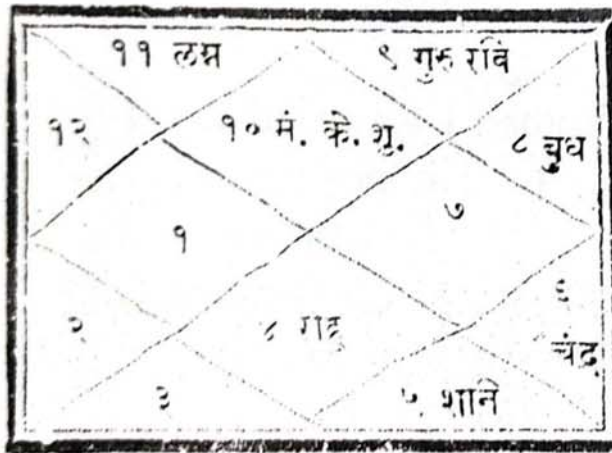 ११ लग्न
९ गुरु रवि
१२
१० मं. के. शु.
८ बुध
१
७
२
४ राहु
६
चंद्र
३
५ शनि